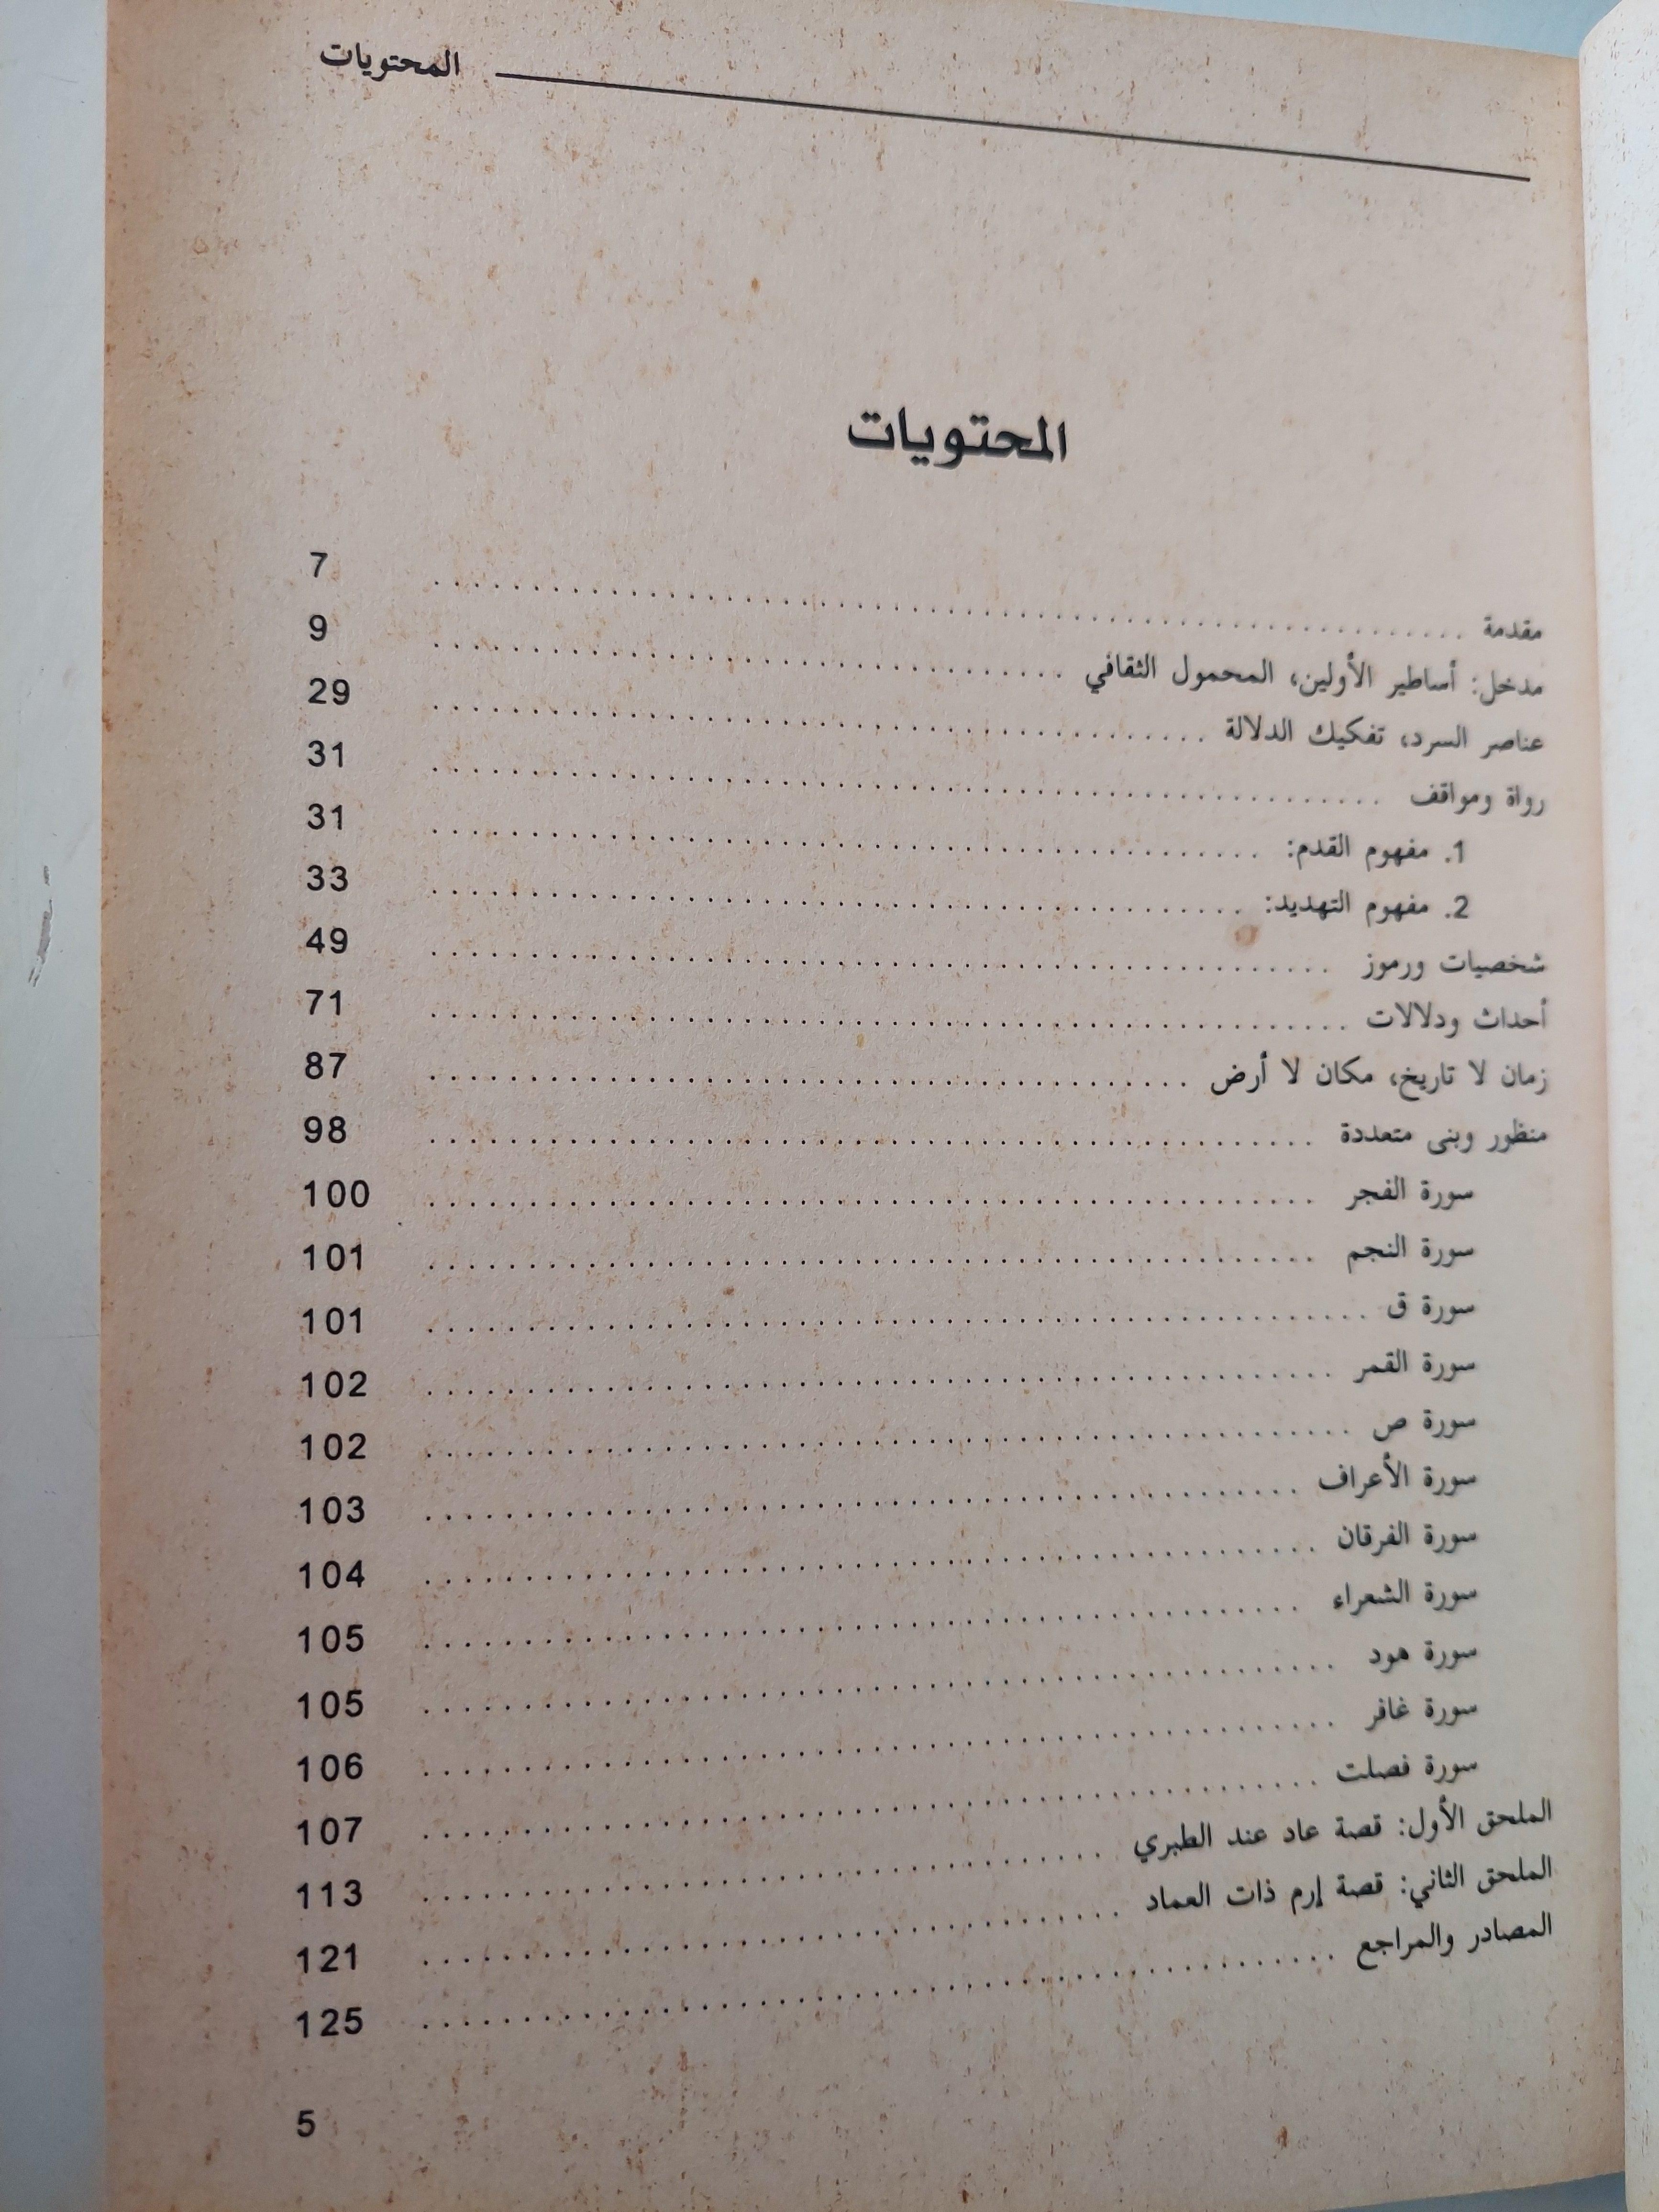 المحتويات
المحتويات
مقدمة 7
مدخل: أساطير الأولين، المحمول الثقافي 9
عناصر السرد، تفكيك الدلالة 29
رواة ومواقف 31
1. مفهوم القدم: 31
2. مفهوم التهديد: 33
شخصيات ورموز 49
أحداث ودلالات 71
زمان لا تاريخ، مكان لا أرض 87
منظور وبنى متعددة 98
سورة الفجر 100
سورة النجم 101
سورة ق 101
سورة القمر 102
سورة ص 102
سورة الأعراف 103
سورة الفرقان 104
سورة الشعراء 105
سورة هود 105
سورة غافر 106
سورة فصلت 107
الملحق الأول: قصة عاد عند الطبري 113
الملحق الثاني: قصة إرم ذات العماد 121
المصادر والمراجع 125
5